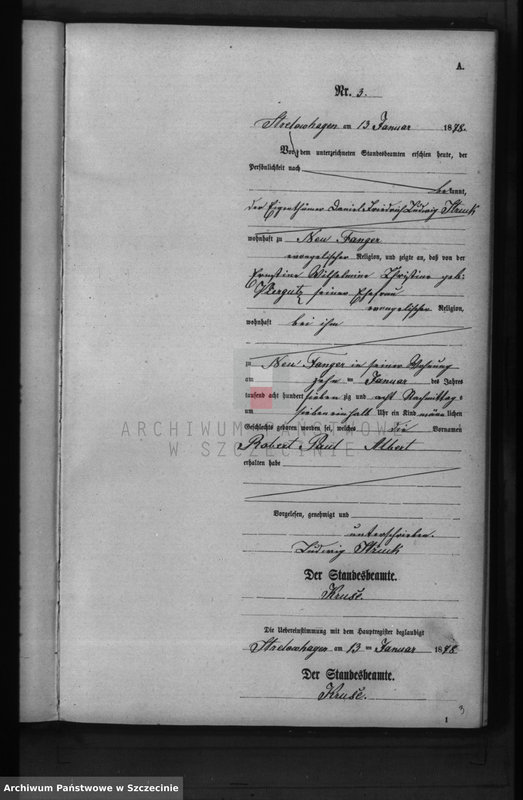 A.
Nr. 3.
Strelowhagen am 13 Januar 1878.
Vor dem unterzeichneten Standesbeamten erschien heute, der
Persönlichkeit nach
bekannt,
der Eigenthümer Daniel Friedrich Ludwig Struck
wohnhaft zu Neu Fanger
evangelischer Religion, und zeigte an, daß von der
Ernstine Wilhelmine Christine geb:
seiner Ehefrau
evangelischer Religion,
wohnhaft bei ihm
zu Neu Fanger in seiner Wohnung
am zehn ten Januar des Jahres
tausend acht hundert sieben zig und acht Nachmittags
um sieben einhalb Uhr ein Kind männlichen
Geschlechts geboren worden sei, welches die Vornamen
Robert Paul Albert
erhalten habe
Vorgelesen, genehmigt und
unterschrieben.
Ludwig Struck
Der Standesbeamte.
Kruse.
Die Uebereinstimmung mit dem Hauptregister beglaubigt
Strelowhagen am 13 ten Januar 1878.
Der Standesbeamte.
Kruse.
3
1
ARCHIWUM PAŃSTWOWE
W SZCZECINIE
Archiwum Państwowe w Szczecinie